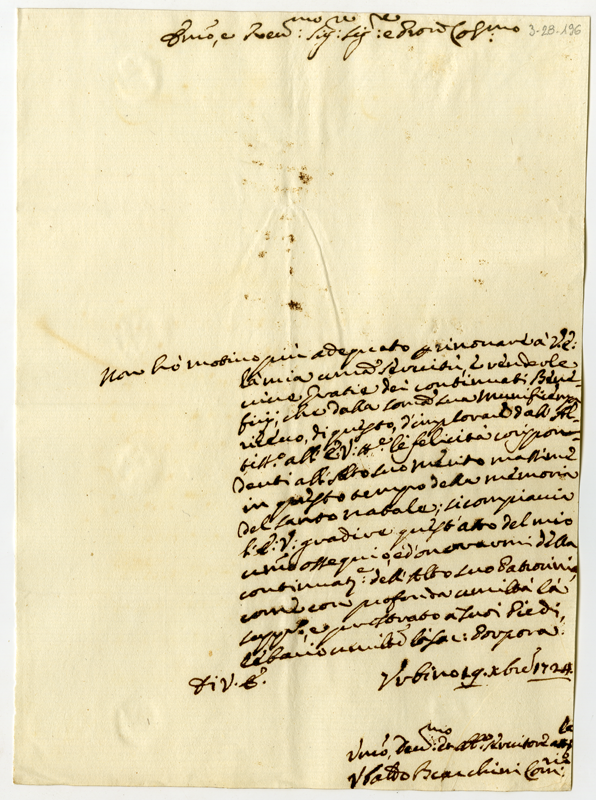 3-28-196
Em̃o, e Reu: mo Sig: re Sig: re e Pron Col: mo
Non hò motivo più adeguato p rinovare à V. E:
la mia um̃ servitù, e renderle
vive gratie dei continuati Bene-
fizij, che dalla som̃ sua munificenza
ricevo, di questo, d'implorare dall'Al-
tiss:o all'E: V: le felicità corrispon-
denti all'Alto suo merito massime
in questo tempo della memoria
del santo natale; si compiacia
l'E: V: gradire quest'atto del mio
um̃o ossequio, ed onorarmi della
continuat:e dell'Alto suo Patrocinio,
come con profonda umiltà la
supp:co, e prostrato a suoi Piedi,
le bacio umilte la Sac: Porpora.
Di V. E.
Urbino 19. Xbre 1724.
Um̃o, Deu: mo et obl: servitore
Ubaldo Bianchieri